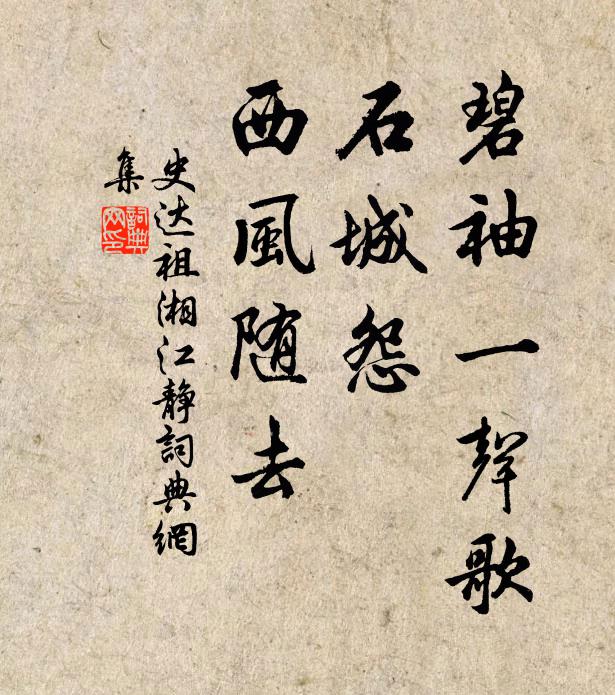 碧袖一聲歌
石城怨
西風随去
史达祖湘江静詞典網
集
詞典网印